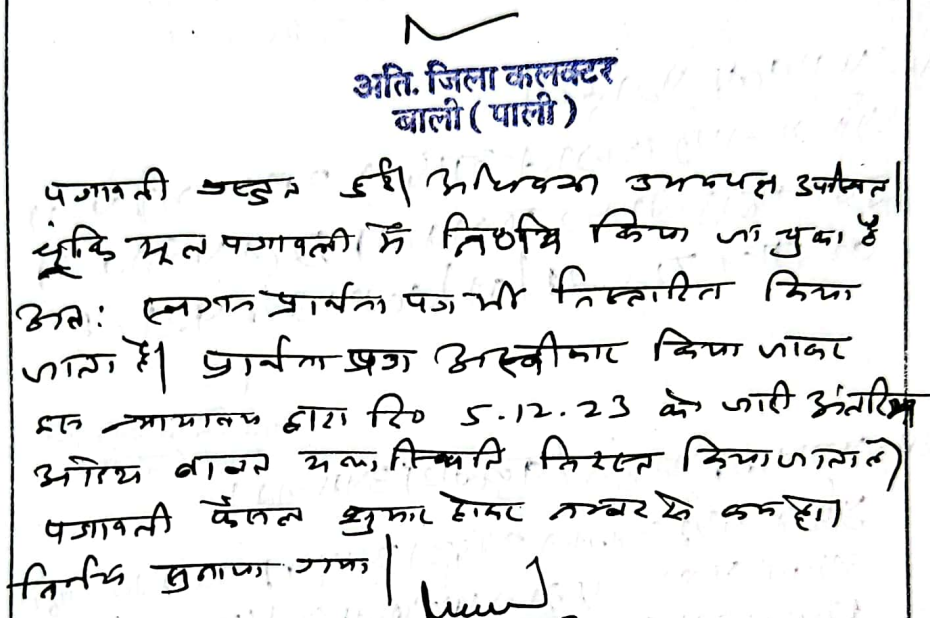 अति. जिला कलक्टर
बाली ( पाली )
पत्रावली प्रस्तुत हुई। अधिवक्ता उभयपक्ष उपस्थित।
चूंकि मूल पत्रावली में निर्णय किया जा चुका है
अत: स्थगन प्रार्थना पत्र भी निस्तारित किया
जाता है। प्रार्थना पत्र अस्वीकार किया जाकर
इस न्यायालय द्वारा दि० 5.12.23 को जारी अंतरिम
आदेश बाबत यथास्थिति निरस्त किया जाता है।
पत्रावली फैसल शुमार होकर नम्बर से कम हो।
निर्णय सुनाया गया।